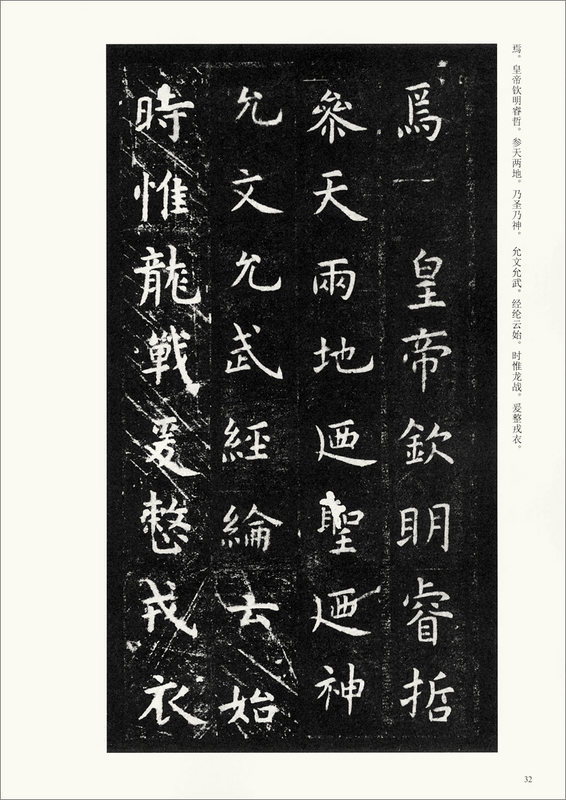 焉。皇帝钦明睿哲。参天两地。乃圣乃神。允文允武。经纶云始。时惟龙战。爰整戎衣。
焉皇帝欽明睿哲
叅天兩地迺聖迺神
允文允武經綸云始
時惟龍戰爰整戎衣
32